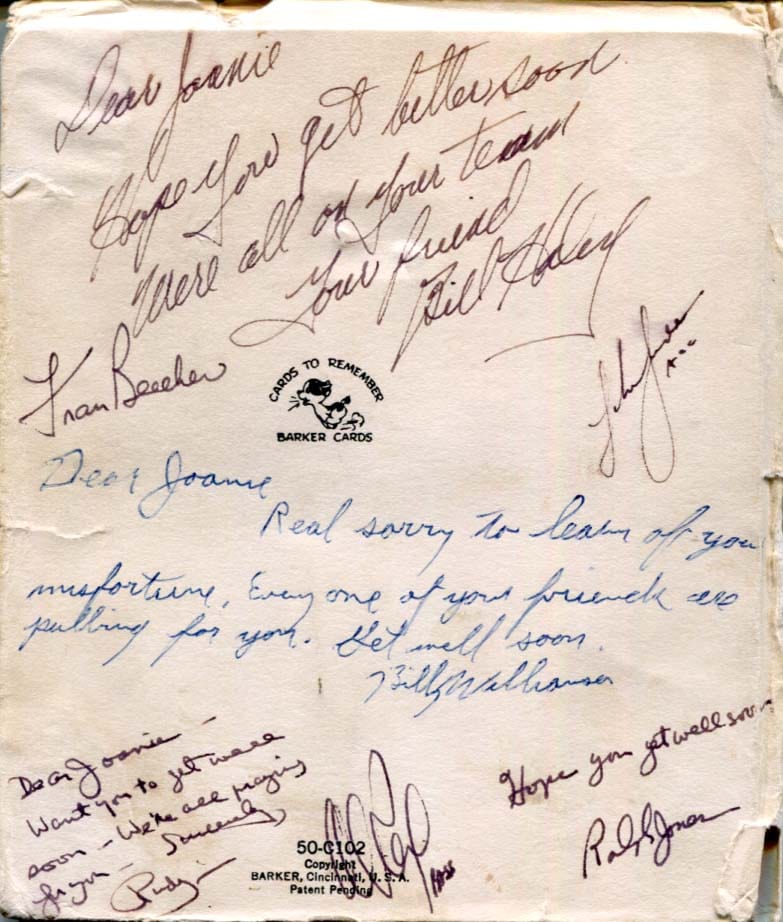 Dear Joanie
Hope you get better soon
Were all on your team
Your friend
Bill Haley
Fran Beecher
CARDS TO REMEMBER
BARKER CARDS
John
Acc
Dear Joanie
Real sorry to learn off you
misfortune, Every one of your friends are
pulling for you. Get well soon.
Billy Williamson
Dear Joanie -
Want you to get well
soon - We're all praying
for you - Sincerely,
Rudy
Hope you get well soon
Ralph Jones
50-C102
Copyright
BARKER, Cincinnati, U. S. A.
Patent Pending
Bass